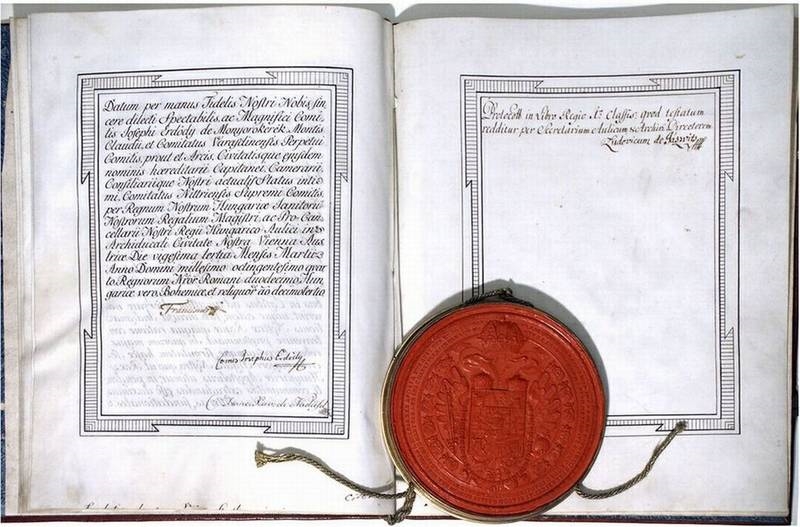 Datum per manus Fidelis Nostri Nobis sin
cere dilecti Spectabilis, ac Magnifici Comi
tis Josephi Erdödy de Monyorokerék Montis
Claudii, et Comitatus Varasdinensis Perpetui
Comitis, prout et Arcis, Civitatisque ejusdem
nominis hæreditarii Capitanei, Camerarii,
Consiliarii que Nostri actualis Status inti
mi, Comitatus Nittriensis Supremi Comitis,
per Regnum Nostrum Hungariæ Ianitorii
Nostrorum Regalium Magistri, ac Pro-Can
cellarii Nostri Regii Hungarico Aulici in
Archiducali Civitate Nostra Vienna Aus
triæ Die vigesima tertia Mensis Martii
Anno Domini millesimo octingentesimo quar
to Regnorum Nror Romani duodecimo, Hun
gariæ vero, Bohemiæ, et reliquor. aö decimotertio.
Franciscus
Comes Josephus Erdödy
Protocoll. in Libro Regio Classis, quod testatum
redditur per Secretarium Aulicum & Archivi Directorem
Ludovicum de